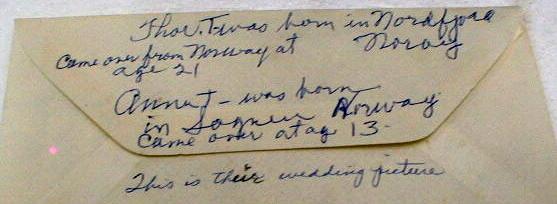 Thor. T was born in Nordfjord
Came over from Norway at Noray
age 21
Anna T - was born
in Sogner Norway
Came over at ag 13-
This is their wedding picture